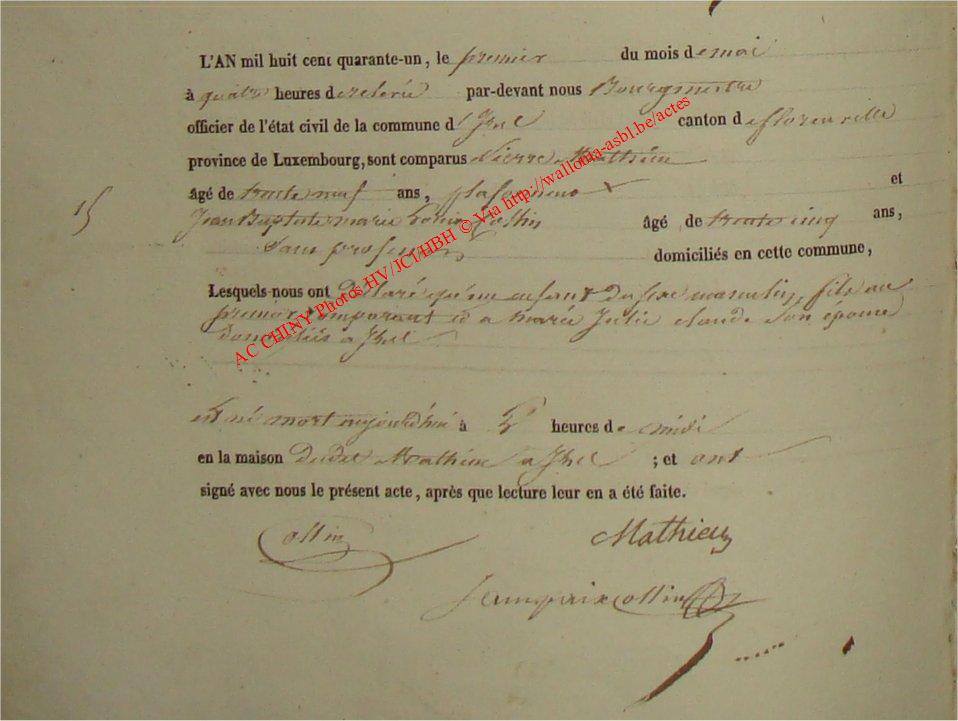 L'AN mil huit cent quarante-un, le premier du mois de mai
à quatre heures de relevée par-devant nous Bourgmestre
officier de l'état civil de la commune d'Izel canton de florenville
province de Luxembourg, sont comparus Pierre Mathieu
âgé de trente neuf ans, plafonneur et
15
Jean Baptiste marie Collin âgé de trente cinq ans,
Sans profession domiciliés en cette commune,
Lesquels nous ont Déclaré qu'un enfant du sexe masculin, fils au
premier comparant et a marie Julie claude Son épouse
domiciliés a Izel
est né mort aujourd'hui à heures de midi
en la maison Dudit Mathieu a Izel ; et ont
signé avec nous le présent acte, après que lecture leur en a été faite.
Collin Mathieu
Collin
AC CHINY Photos HV/JCI/HBH © Via http://wallonia-asbl.be/actes